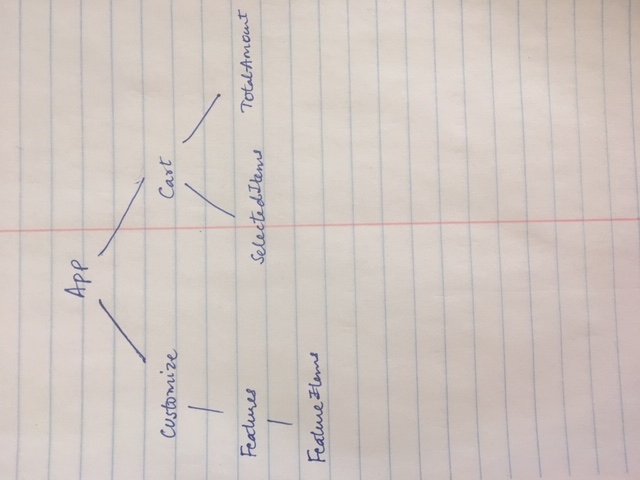 App
Customize
Cart
Features
SelectedItems
TotalAmount
FeatureItems